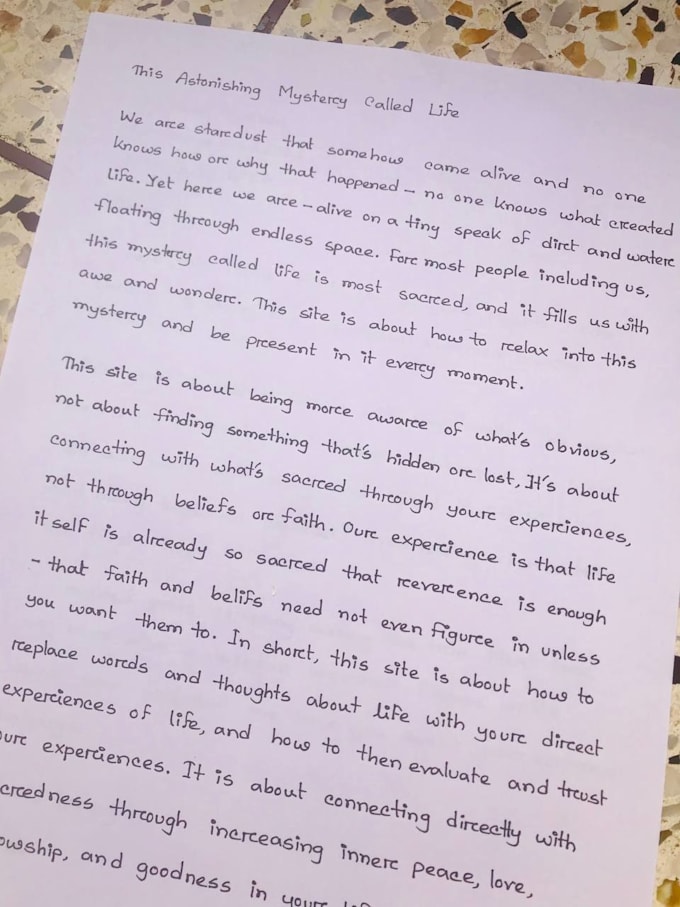 This Astonishing Mystery Called Life
We are stardust that somehow came alive and no one
knows how or why that happened – no one knows what created
life. Yet here we are – alive on a tiny speck of dirt and water
floating through endless space. For most people including us,
this mystery called life is most sacred, and it fills us with
awe and wonder. This site is about how to relax into this
mystery and be present in it every moment.
This site is about being more aware of what's obvious,
not about finding something that's hidden or lost, It's about
connecting with what's sacred through your experiences,
not through beliefs or faith. Our experience is that life
itself is already so sacred that reverence is enough
- that faith and belifs need not even figure in unless
you want them to. In short, this site is about how to
replace words and thoughts about life with your direct
experiences of life, and how to then evaluate and trust
our experiences. It is about connecting directly with
credness through increasing inner peace, love,
owship, and goodness in your